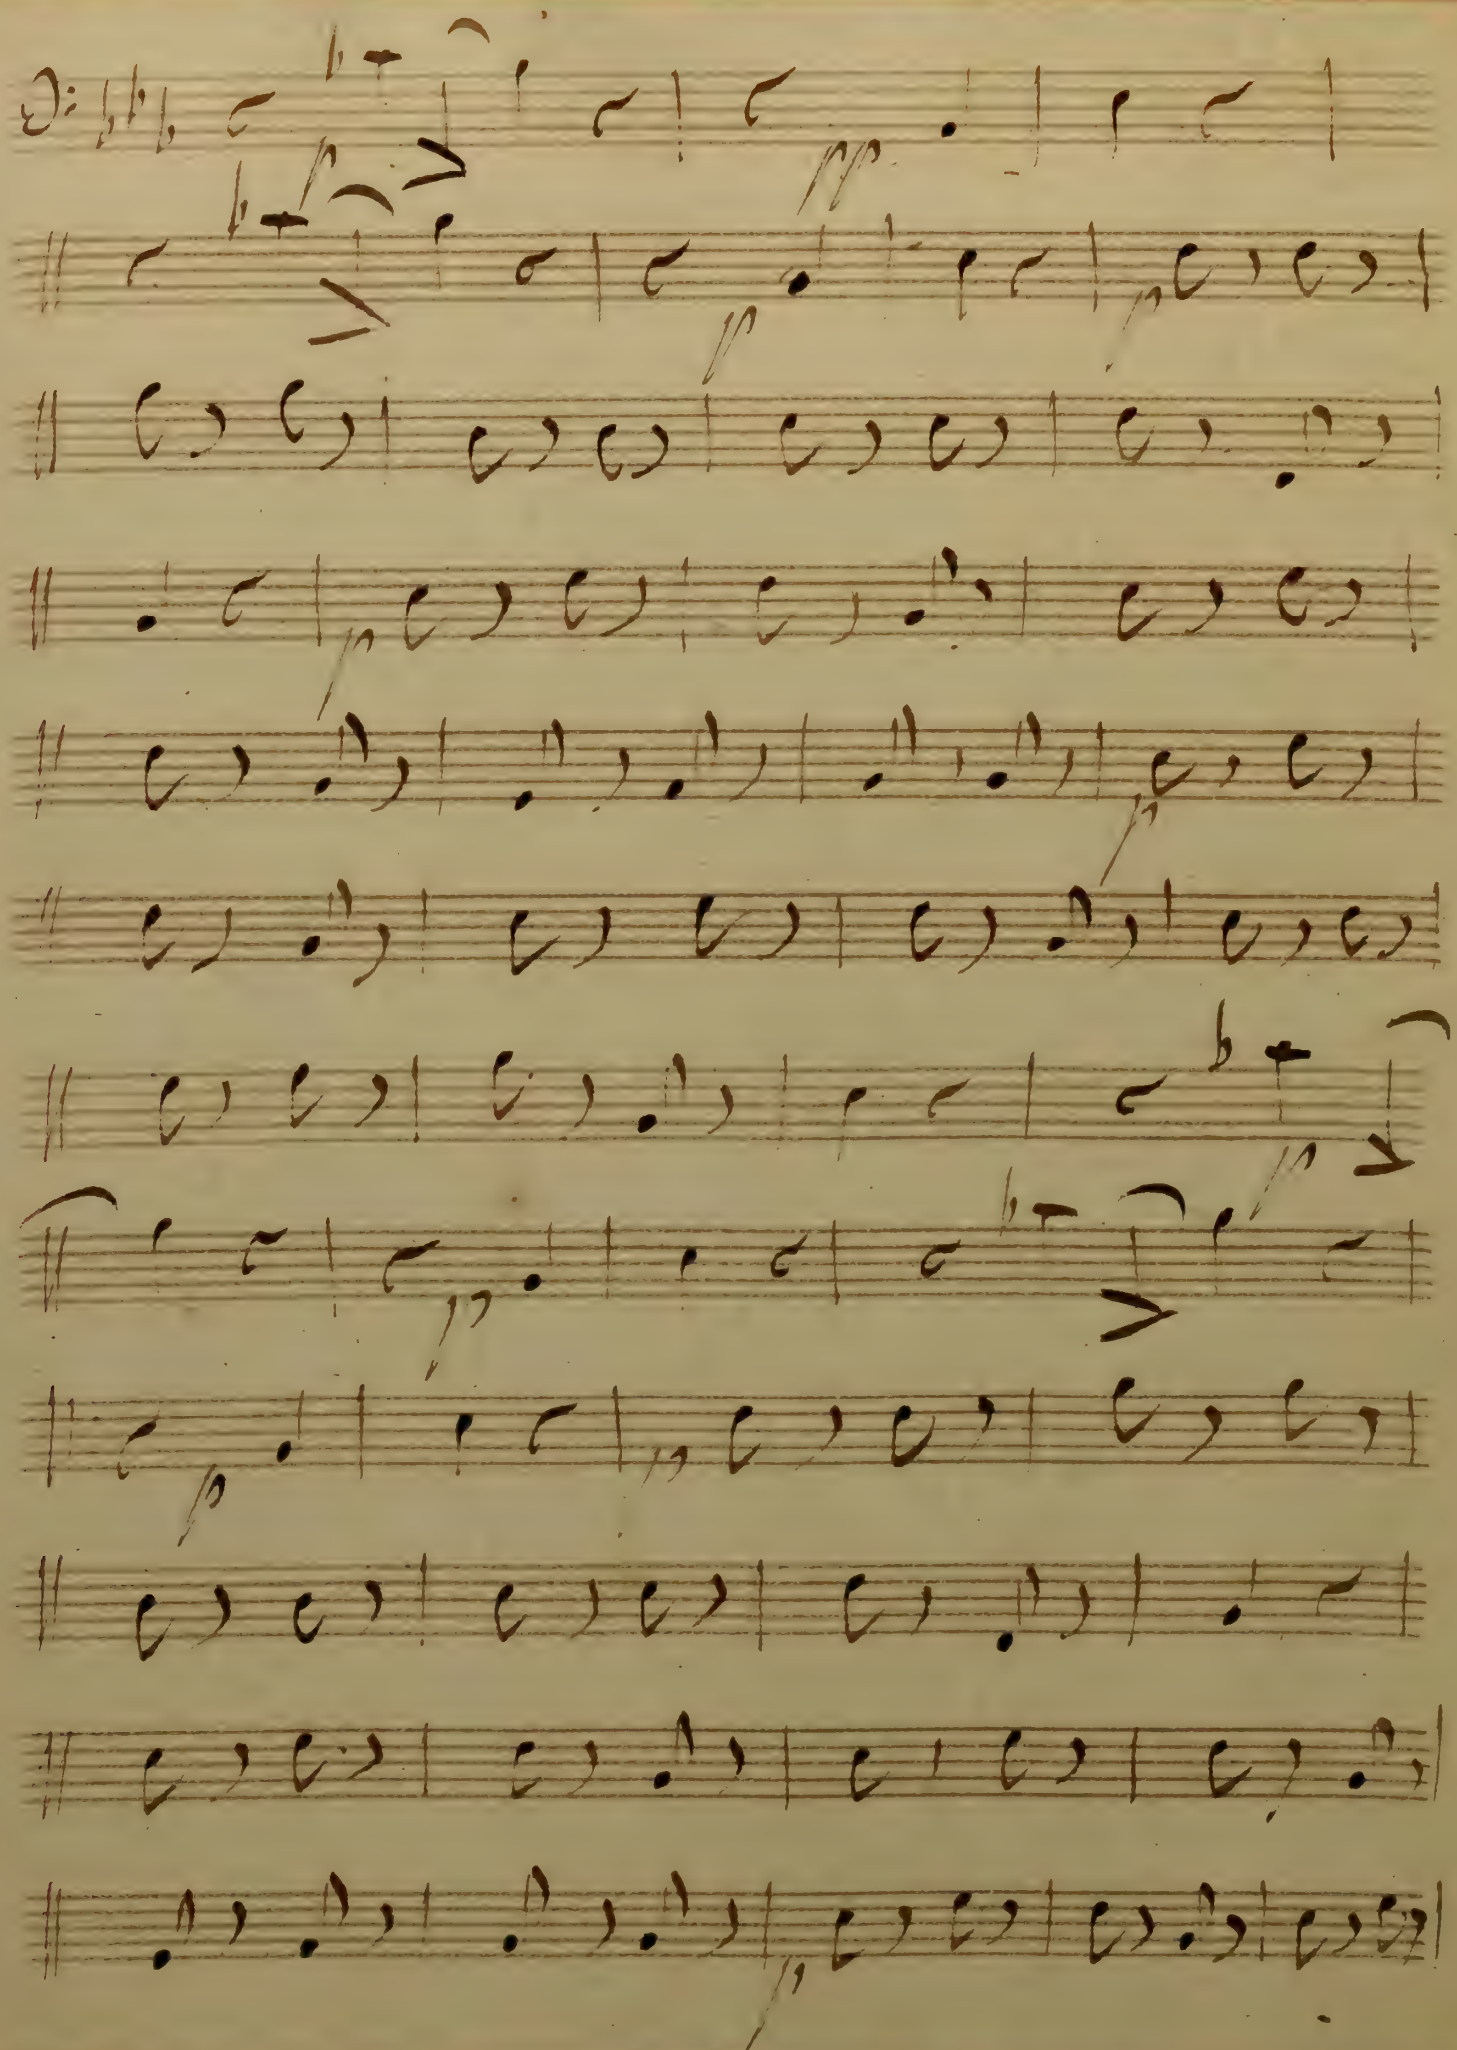 p pp
p p
p
p
p
p
p p
p
p